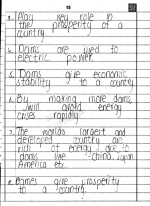 3. Play key role in
the prosperity of a
country.
4. Dams are used to
electric power.
5. Dams give economic
stability to a country
6. By making more dams,
will avoid energy
crises rapidly.
7. The worlds largest and
developed country are
rich of energy due to
dams like China, Japan
America etc.
8. Dames give prosperity
to a country.